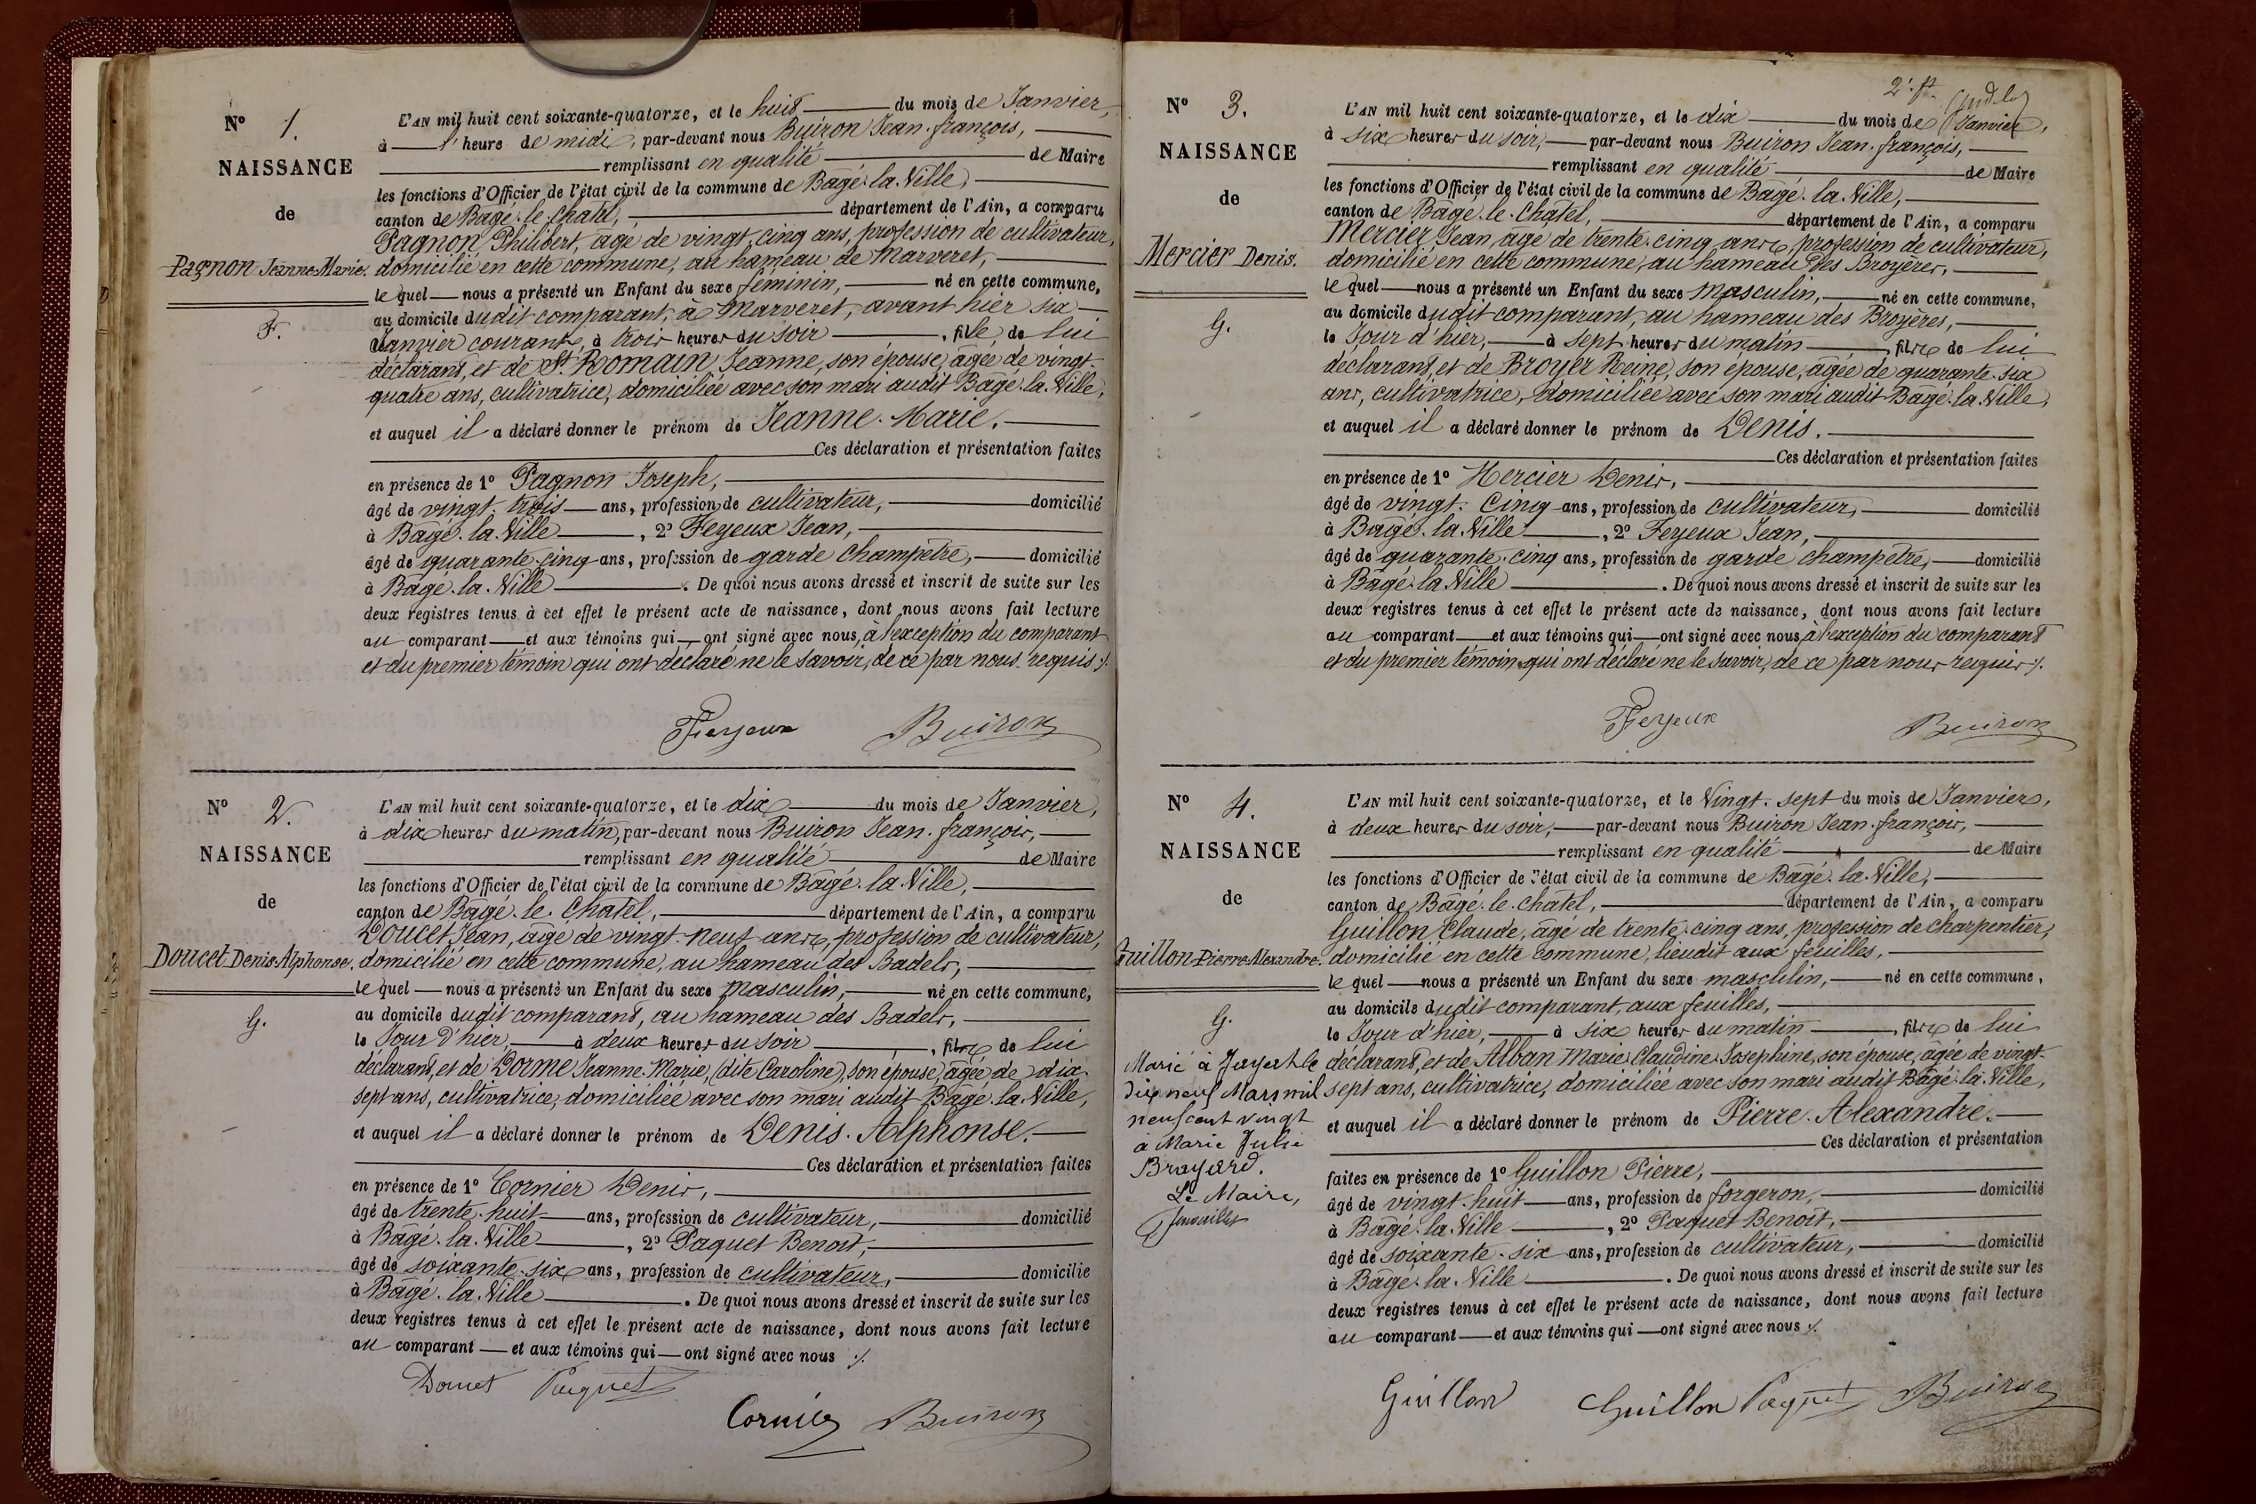 N° 1.
NAISSANCE
de
Pagnon Jeanne-Marie.
F.
L'AN mil huit cent soixante-quatorze, et le huit du mois de Janvier,
à l'heure de midi, par-devant nous Buiron Jean-françois,
remplissant en qualité de Maire
les fonctions d'Officier de l'état civil de la commune de Bâgé-la-Ville,
canton de Bâgé-le-Chatel, département de l'Ain, a comparu
Pagnon Philibert, âgé de vingt-cinq ans, profession de cultivateur,
domicilié en cette commune, au hameau de Marveret,
lequel nous a présenté un Enfant du sexe féminin, né en cette commune,
au domicile dudit comparant, à Marveret, avant hier six
Janvier courant, à trois heures du soir, fille de lui
déclarant, et de St. Romain Jeanne, son épouse, âgée de vingt-
quatre ans, cultivatrice, domiciliée avec son mari audit Bâgé-la-Ville,
et auquel il a déclaré donner le prénom de Jeanne-Marie.
Ces déclaration et présentation faites
en présence de 1° Pagnon Joseph,
âgé de vingt-trois ans, profession de cultivateur, domicilié
à Bâgé-la-Ville, 2° Feyeux Jean,
âgé de quarante-cinq ans, profession de garde champêtre, domicilié
à Bâgé-la-Ville. De quoi nous avons dressé et inscrit de suite sur les
deux registres tenus à cet effet le présent acte de naissance, dont nous avons fait lecture
au comparant et aux témoins qui ont signé avec nous, à l'exception du comparant
et du premier témoin qui ont déclaré ne le savoir, de ce par nous requis ./.
Feyeux Buiron
N° 2.
NAISSANCE
de
Doucet Denis-Alphonse.
G.
L'AN mil huit cent soixante-quatorze, et le dix du mois de Janvier,
à dix heures du matin, par-devant nous Buiron Jean-françois,
remplissant en qualité de Maire
les fonctions d'Officier de l'état civil de la commune de Bâgé-la-Ville,
canton de Bâgé-le-Châtel, département de l'Ain, a comparu
Doucet Jean, âgé de vingt-neuf ans, profession de cultivateur,
domicilié en cette commune, au hameau des Badels,
lequel nous a présenté un Enfant du sexe masculin, né en cette commune,
au domicile dudit comparant, au hameau des Badels,
le Jour d'hier, à deux heures du soir, fils de lui
déclarant, et de Dorme Jeanne-Marie, (dite Caroline), son épouse, âgée de dix-
sept ans, cultivatrice, domiciliée avec son mari audit Bâgé-la-Ville,
et auquel il a déclaré donner le prénom de Denis-Alphonse.
Ces déclaration et présentation faites
en présence de 1° Cornier Denis,
âgé de trente-huit ans, profession de cultivateur, domicilié
à Bâgé-la-Ville, 2° Paquet Benoit,
âgé de soixante-six ans, profession de cultivateur, domicilié
à Bâgé-la-Ville. De quoi nous avons dressé et inscrit de suite sur les
deux registres tenus à cet effet le présent acte de naissance, dont nous avons fait lecture
au comparant et aux témoins qui ont signé avec nous ./.
Doucet Paquet
Cornier Buiron
2e. ft.
N° 3.
NAISSANCE
de
Mercier Denis.
G.
L'AN mil huit cent soixante-quatorze, et le dix du mois de Janvier,
à six heures du soir, par-devant nous Buiron Jean-françois,
remplissant en qualité de Maire
les fonctions d'Officier de l'état civil de la commune de Bâgé-la-Ville,
canton de Bâgé-le-Châtel, département de l'Ain, a comparu
Mercier Jean, âgé de trente-cinq ans, profession de cultivateur,
domicilié en cette commune, au hameau des Broyères,
lequel nous a présenté un Enfant du sexe masculin, né en cette commune,
au domicile dudit comparant, au hameau des Broyères,
le Jour d'hier, à sept heures du matin, fils de lui
déclarant, et de Broyer Reine, son épouse, âgée de quarante-six
ans, cultivatrice, domiciliée avec son mari audit Bâgé-la-Ville,
et auquel il a déclaré donner le prénom de Denis.
Ces déclaration et présentation faites
en présence de 1° Mercier Denis,
âgé de vingt-cinq ans, profession de cultivateur, domicilié
à Bâgé-la-Ville, 2° Feyeux Jean,
âgé de quarante-cinq ans, profession de garde champêtre, domicilié
à Bâgé-la-Ville. De quoi nous avons dressé et inscrit de suite sur les
deux registres tenus à cet effet le présent acte de naissance, dont nous avons fait lecture
au comparant et aux témoins qui ont signé avec nous, à l'exception du comparant
et du premier témoin qui ont déclaré ne le savoir, de ce par nous requis ./.
Feyeux Buiron
N° 4.
NAISSANCE
de
Guillon Pierre-Alexandre.
G.
Marié à Jayat le
dix neuf Mars mil
neuf cent vingt
à Marie Julie
Brayard.
Le Maire,
L'AN mil huit cent soixante-quatorze, et le Vingt-sept du mois de Janvier,
à deux heures du soir, par-devant nous Buiron Jean-françois,
remplissant en qualité de Maire
les fonctions d'Officier de l'état civil de la commune de Bâgé-la-Ville,
canton de Bâgé-le-châtel, département de l'Ain, a comparu
Guillon Claude, âgé de trente-cinq ans, profession de charpentier,
domicilié en cette commune, lieudit aux feuilles,
lequel nous a présenté un Enfant du sexe masculin, né en cette commune,
au domicile dudit comparant, aux feuilles,
le Jour d'hier, à six heures du matin, fils de lui
déclarant, et de Alban Marie-Claudine-Josephine, son épouse, âgée de vingt-
sept ans, cultivatrice, domiciliée avec son mari audit Bâgé-la-Ville,
et auquel il a déclaré donner le prénom de Pierre-Alexandre.
Ces déclaration et présentation
faites en présence de 1° Guillon Pierre,
âgé de vingt-huit ans, profession de forgeron, domicilié
à Bâgé-la-Ville, 2° Paquet Benoit,
âgé de soixante-six ans, profession de cultivateur, domicilié
à Bâgé-la-Ville. De quoi nous avons dressé et inscrit de suite sur les
deux registres tenus à cet effet le présent acte de naissance, dont nous avons fait lecture
au comparant et aux témoins qui ont signé avec nous ./.
Guillon Guillon Paquet Buiron